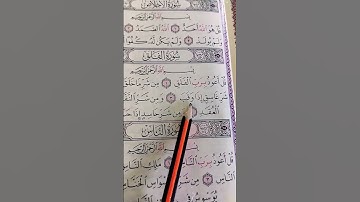 سُورَةُ الإِخْلَاصِ
بِسْمِ اللَّهِ الرَّحْمَٰنِ الرَّحِيمِ
قُلْ هُوَ اللَّهُ أَحَدٌ ۝ اللَّهُ الصَّمَدُ
وَلَمْ يُولَدْ ۝ وَلَمْ يَكُن لَّهُ كُفُوًا
سُورَةُ الْفَلَقِ
بِسْمِ اللَّهِ الرَّحْمَٰنِ الرَّحِيمِ
قُلْ أَعُوذُ بِرَبِّ الْفَلَقِ ۝ مِن شَرِّ مَا خَلَقَ
شَرِّ غَاسِقٍ إِذَا وَقَبَ ۝ وَمِن شَرِّ النَّفَّا
الْعُقَدِ ۝ وَمِن شَرِّ حَاسِدٍ إِذَا حَسَدَ
سُورَةُ النَّاسِ
بِسْمِ اللَّهِ الرَّحْمَٰنِ الرَّحِيمِ
قُلْ أَعُوذُ بِرَبِّ النَّاسِ ۝ مَلِكِ النَّاسِ
النَّاسِ ۝ مِن شَرِّ الْوَسْوَاسِ الْخَنَّاسِ
يُوَسْوِسُ